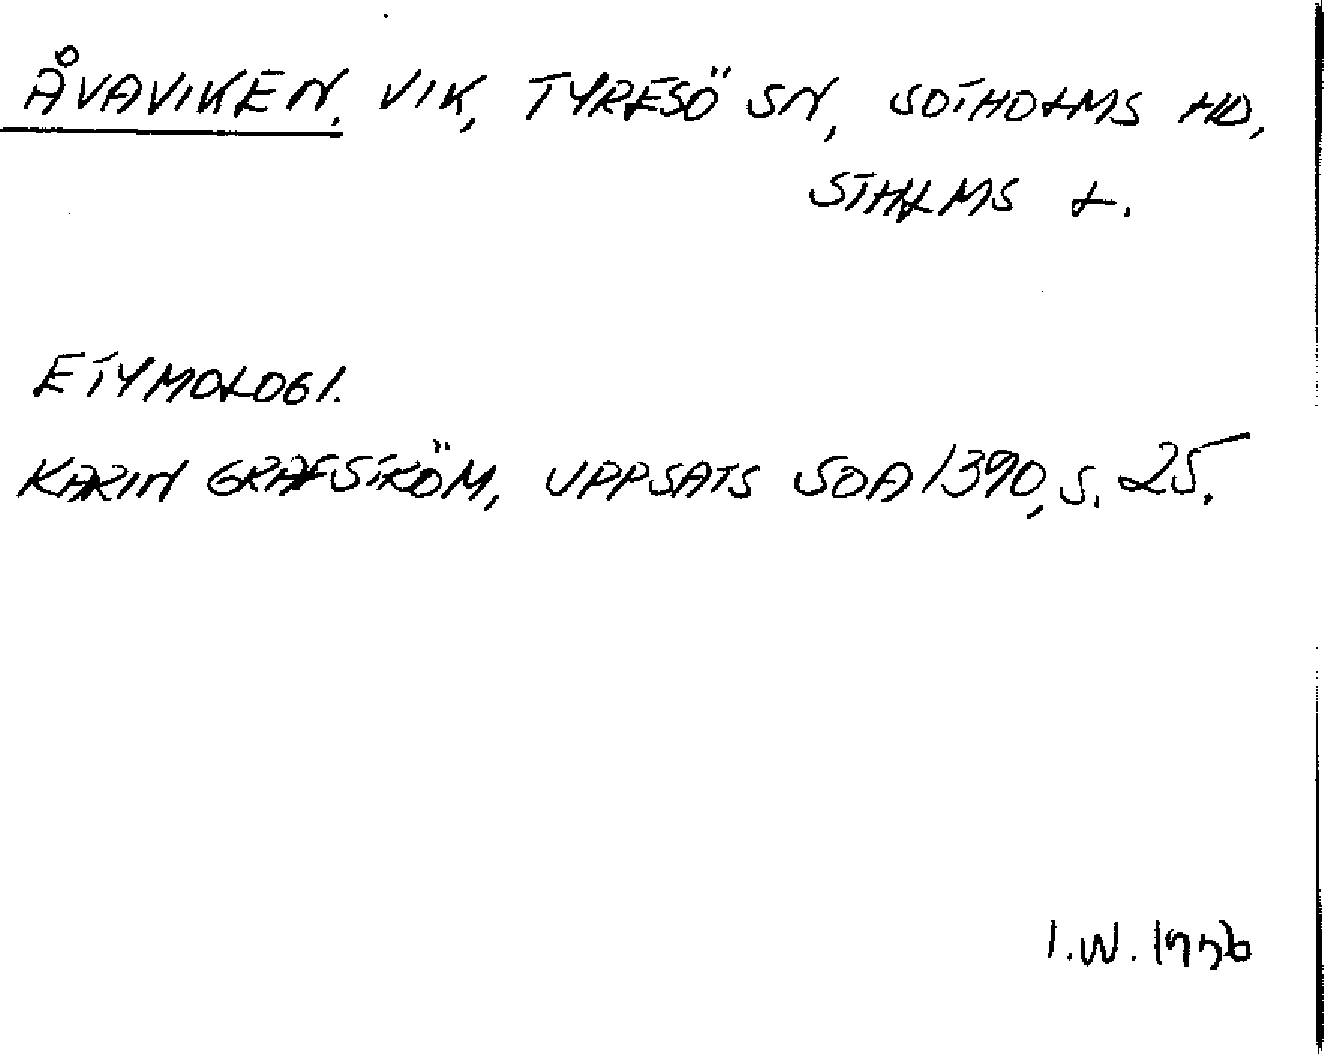 ÅVAVIKEN. VIK, TYRESÖ SN, SOTHOLMS HD,
STHLMS L.
ETYMOLOGI.
KARIN GRAFSTRÖM, UPPSATS SOA 1390, S. 25.
I.W.